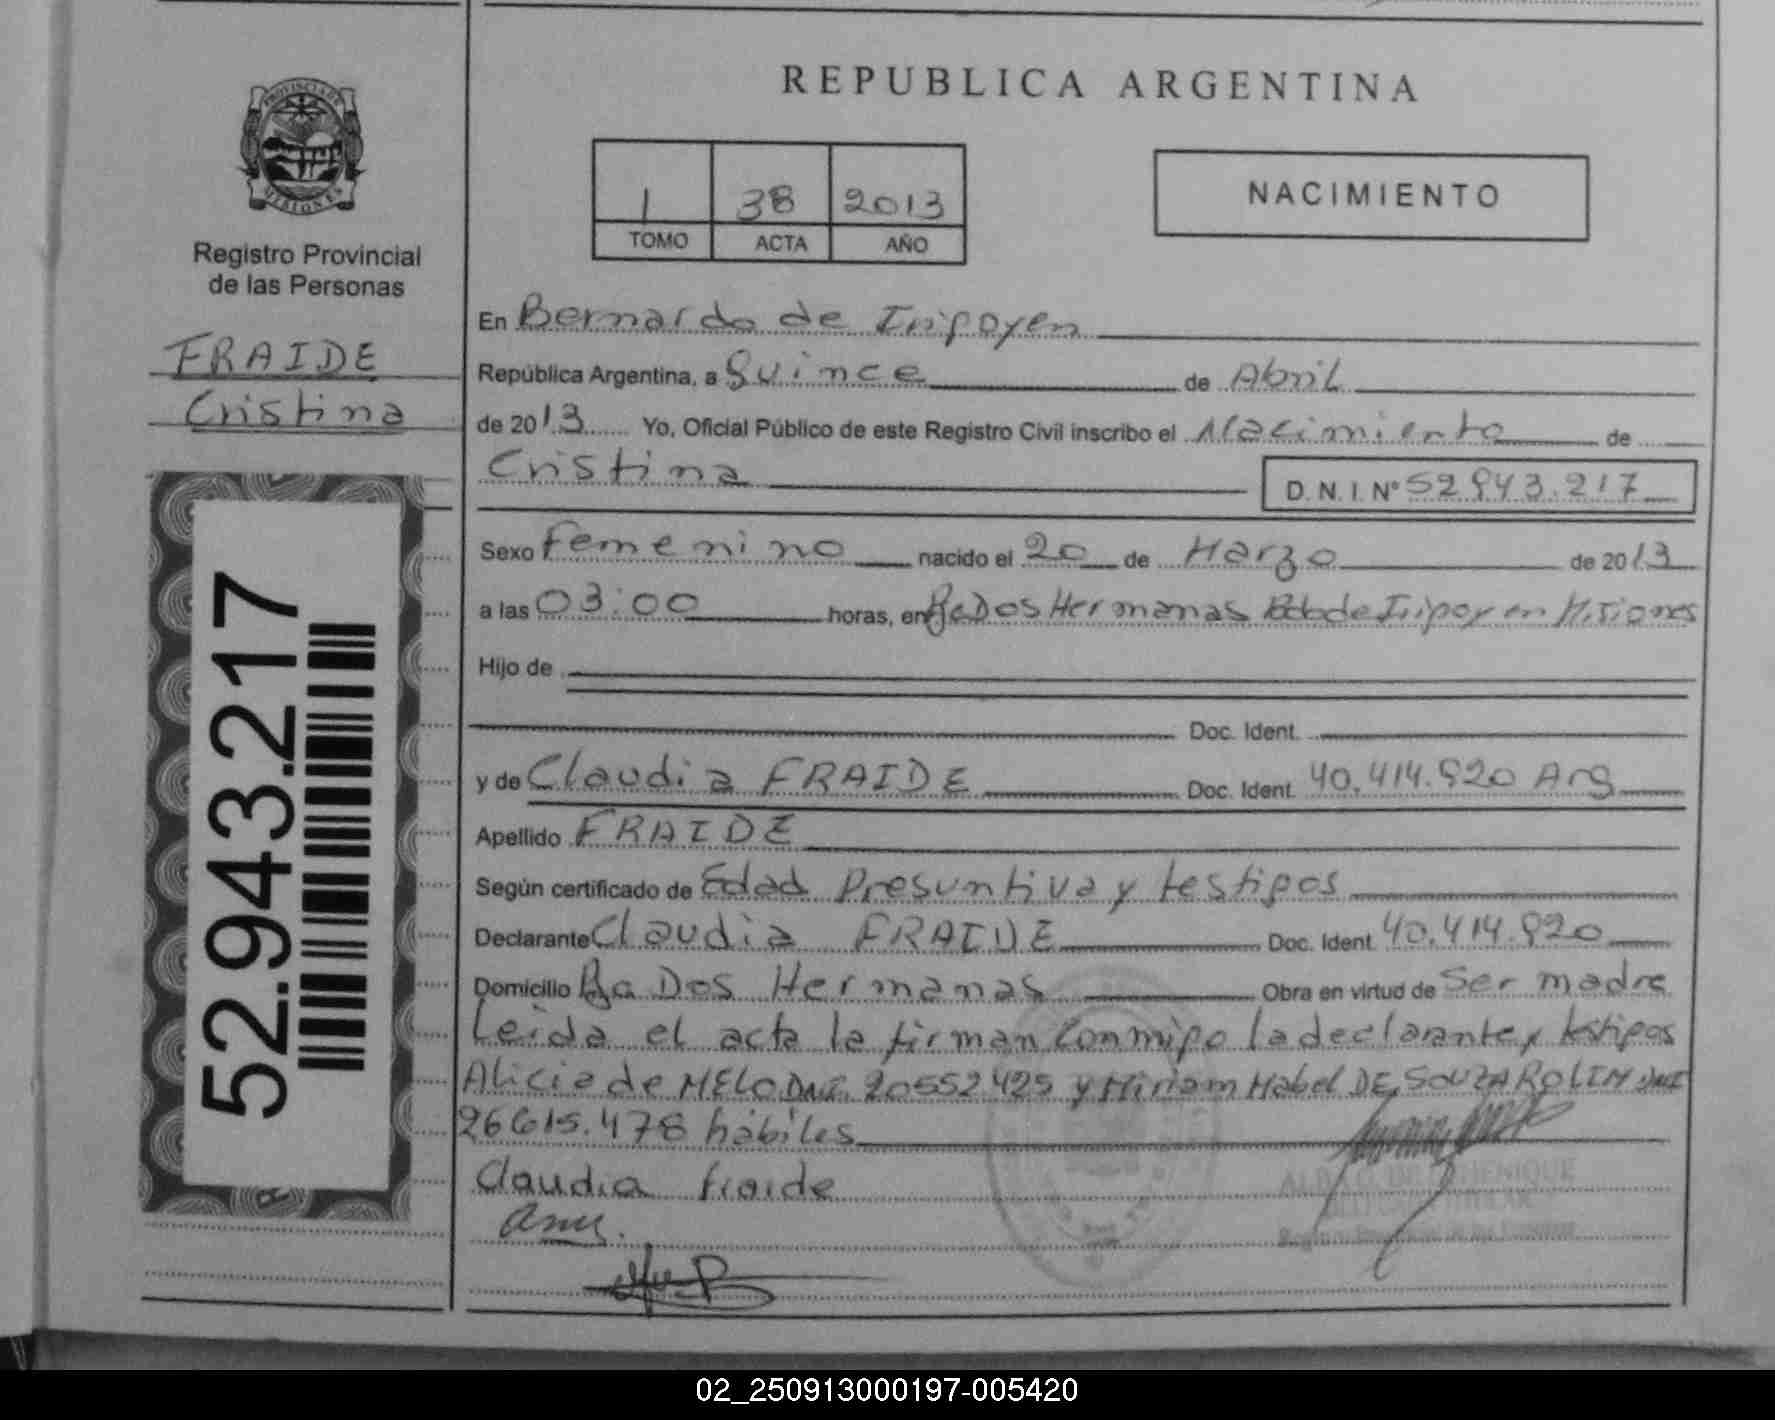 REPUBLICA ARGENTINA
PROVINCIA DE
MISIONES
Registro Provincial
de las Personas
FRAIDE
Cristina
52.943.217
1 38 2013
TOMO ACTA AÑO
NACIMIENTO
En Bernardo de Irigoyen
República Argentina, a Quince de Abril
de 2013 Yo, Oficial Público de este Registro Civil inscribo el Nacimiento de
Cristina D. N. I. N° 52.943.217
Sexo Femenino nacido el 20 de Marzo de 2013
a las 03:00 horas, en Dos Hermanas Bdo de Irigoyen Misiones
Hijo de
Doc. Ident.
y de Claudia FRAIDE Doc. Ident. 40.414.920 Arg
Apellido FRAIDE
Según certificado de Edad Presuntiva y testigos
Declarante Claudia FRAIDE Doc. Ident. 40.414.920
Domicilio Dos Hermanas Obra en virtud de Ser madre
Leida el acta la firman conmigo la declarante y testigos
Alicia de MELO DNI. 20552425 y Miriam Mabel DE SOUZA ROLIM DNI
26615.478 habiles
Claudia fraide
02_250913000197-005420